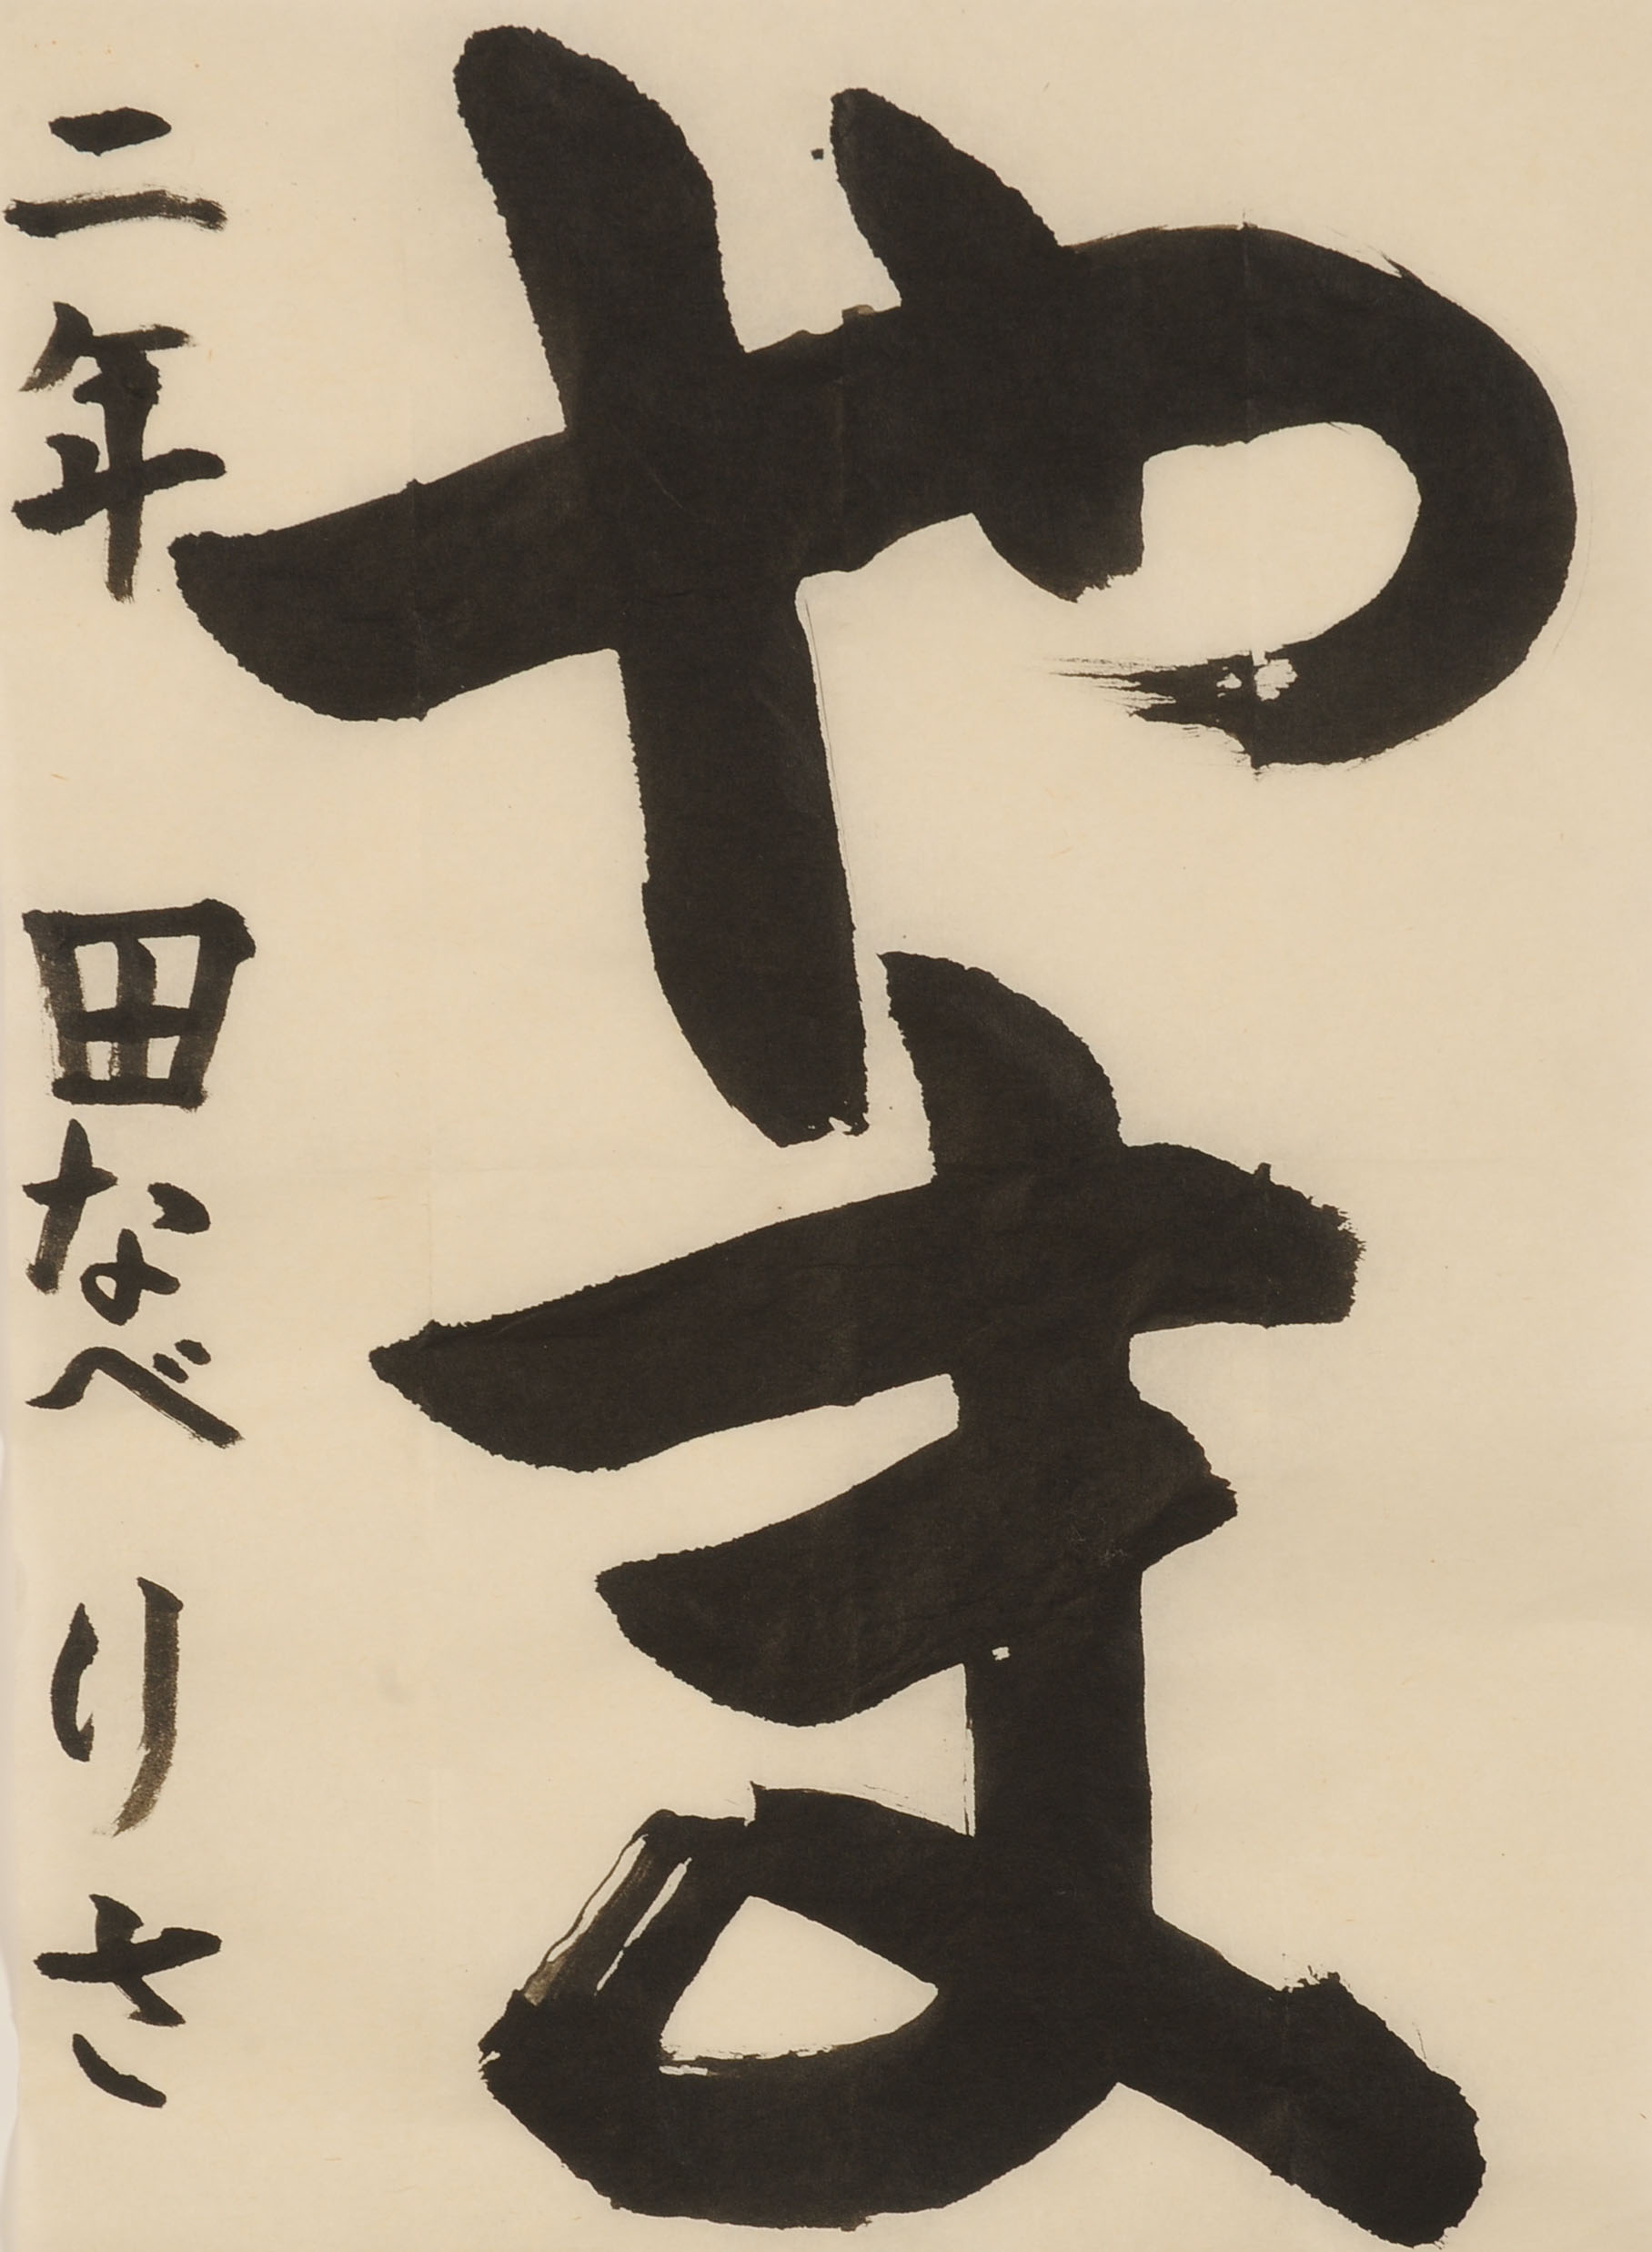 やま
二年 田なべ りさ